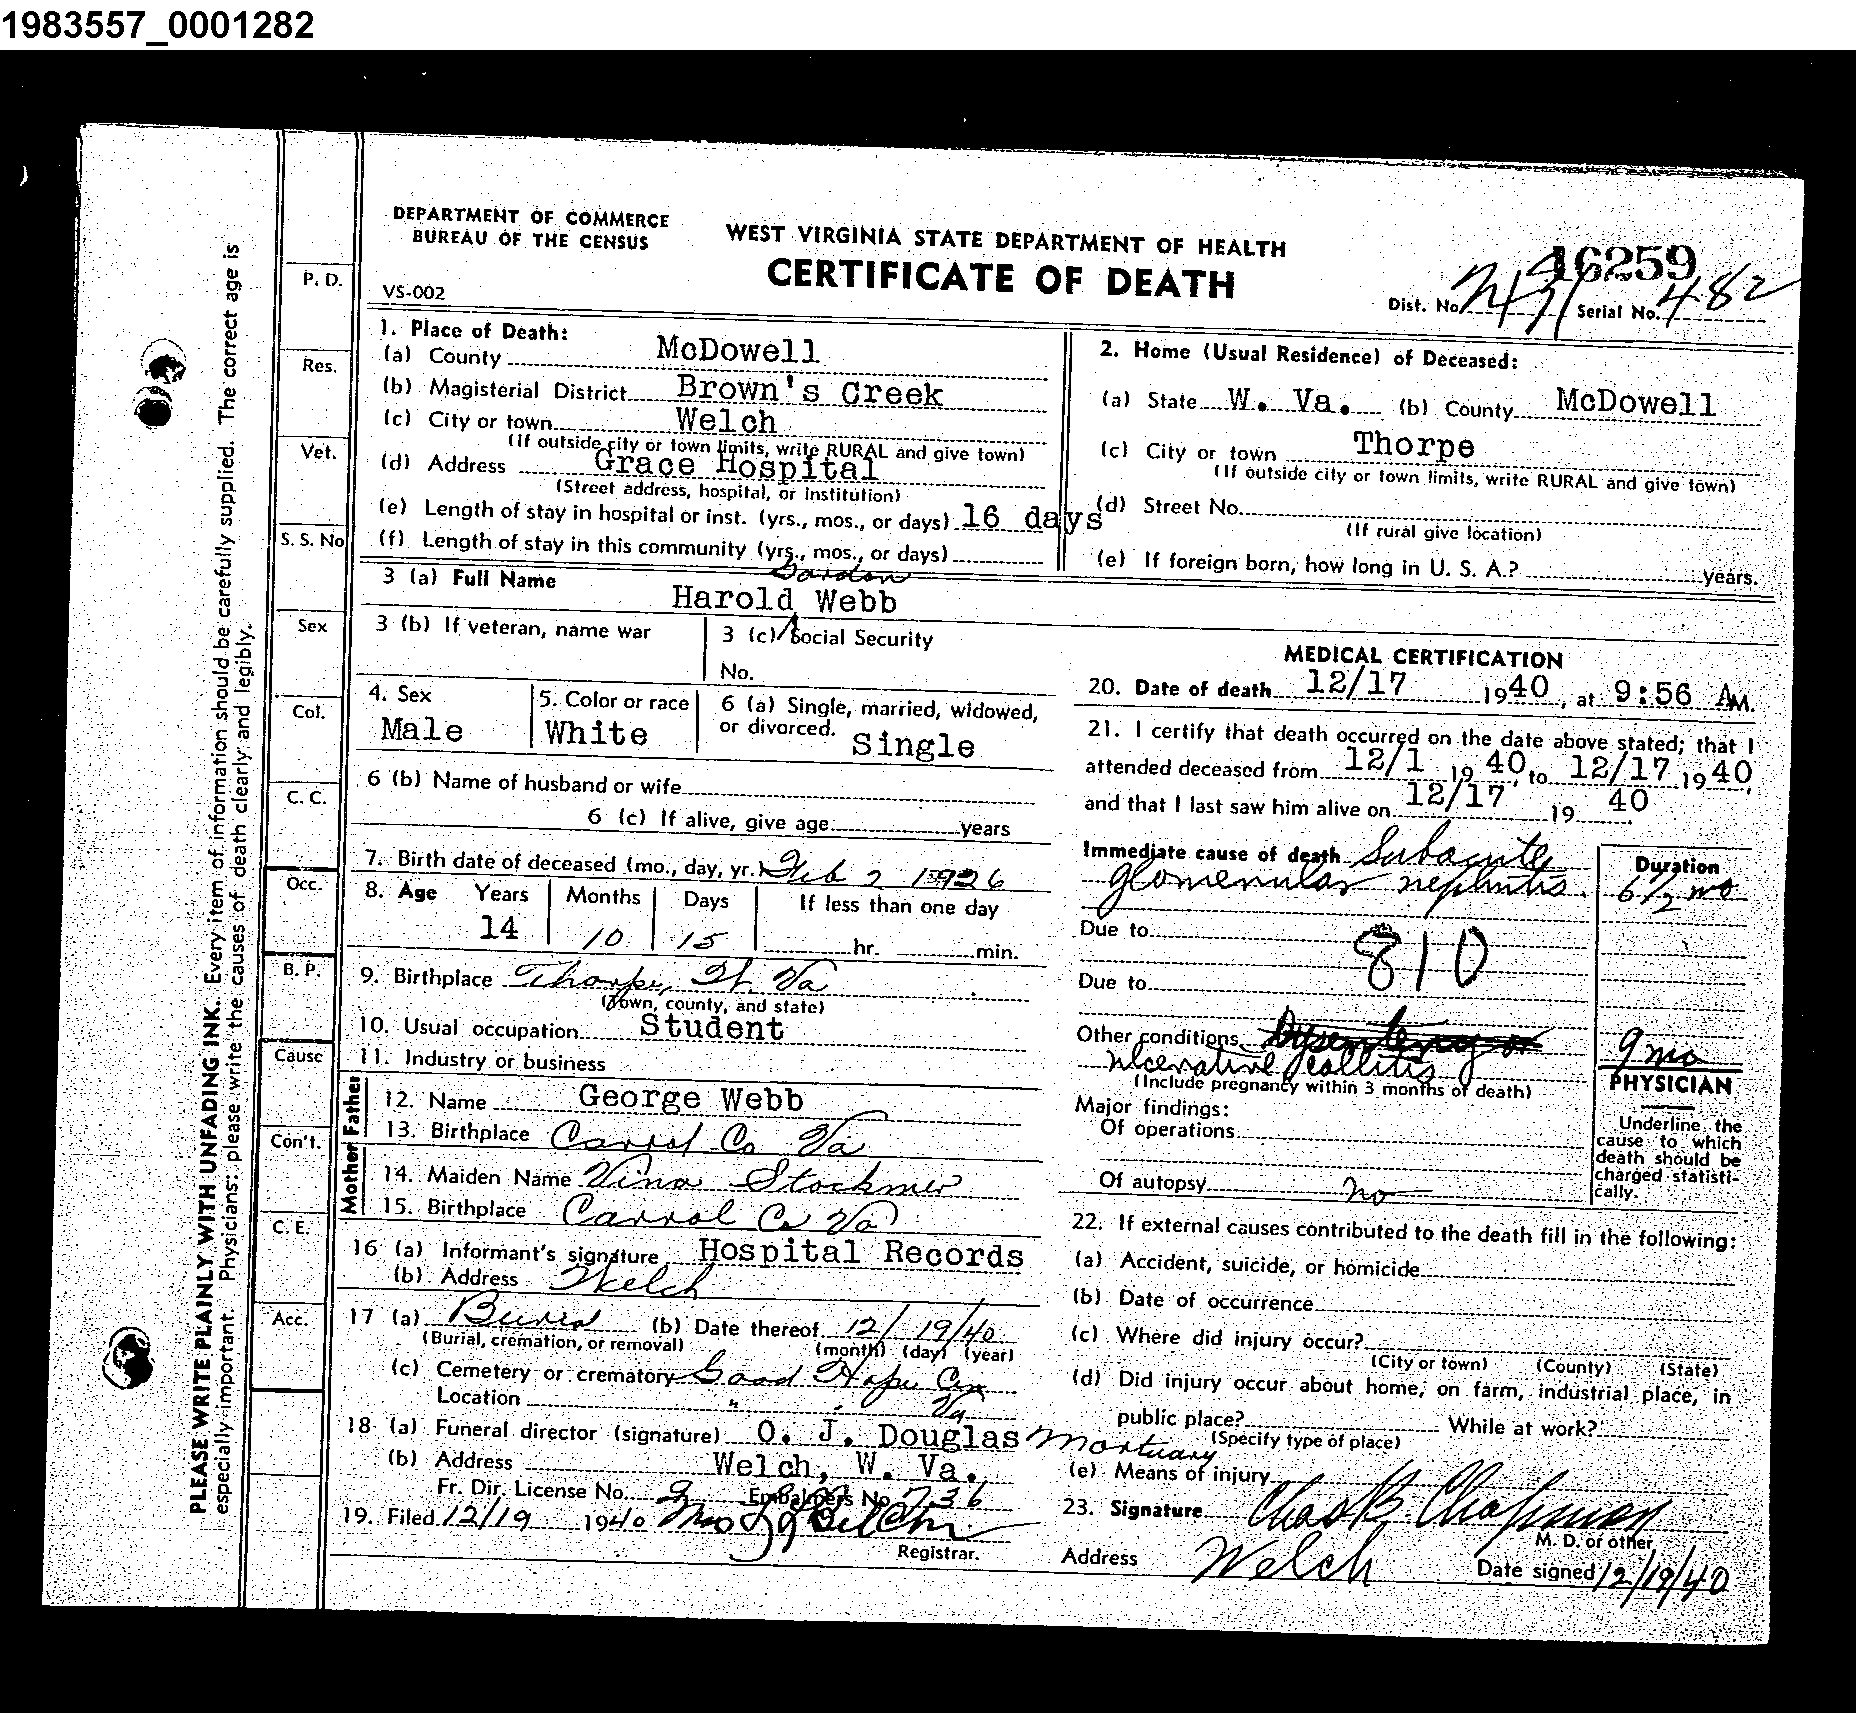 1983557_0001282
DEPARTMENT OF COMMERCE
BUREAU OF THE CENSUS
WEST VIRGINIA STATE DEPARTMENT OF HEALTH
CERTIFICATE OF DEATH
VS-002
16259
Dist. No. Serial No. 482
PLEASE WRITE PLAINLY WITH UNFADING INK. Every item of information should be carefully supplied. The correct age is
especially important. Physicians: please write the causes of death clearly and legibly.
P. D.
Res.
Vet.
S. S. No
Sex
Col.
C. C.
Occ.
B. P.
Cause
Con't.
C. E.
Acc.
1. Place of Death:
(a) County McDowell
(b) Magisterial District Brown's Creek
(c) City or town Welch
(If outside city or town limits, write RURAL and give town)
(d) Address Grace Hospital
(Street address, hospital, or institution)
(e) Length of stay in hospital or inst. (yrs., mos., or days) 16 days
(f) Length of stay in this community (yrs., mos., or days)
2. Home (Usual Residence) of Deceased:
(a) State W. Va. (b) County McDowell
(c) City or town Thorpe
(If outside city or town limits, write RURAL and give town)
(d) Street No.
(If rural give location)
(e) If foreign born, how long in U. S. A.? years.
Gordon
3 (a) Full Name Harold Webb
3 (b) If veteran, name war
3 (c) Social Security
No.
4. Sex
Male
5. Color or race
White
6 (a) Single, married, widowed,
or divorced. Single
6 (b) Name of husband or wife
6 (c) If alive, give age years
7. Birth date of deceased (mo., day, yr.) Feb 2 1926
8. Age Years Months Days If less than one day
14 10 15 hr. min.
9. Birthplace Thorpe, W. Va
(Town, county, and state)
10. Usual occupation Student
11. Industry or business
Father
12. Name George Webb
13. Birthplace Carrol Co Va
Mother
14. Maiden Name Vina Stockner
15. Birthplace Carrol Co Va
16 (a) Informant's signature Hospital Records
(b) Address Welch
17 (a) Burial (b) Date thereof 12/19/40
(Burial, cremation, or removal) (month) (day) (year)
(c) Cemetery or crematory Good Hope Cem
Location " " Va
18 (a) Funeral director (signature) O. J. Douglas Mortuary
(b) Address Welch, W. Va.
Fr. Dir. License No. Embalmers No. 736
19. Filed 12/19 1940 Mrs
Registrar.
MEDICAL CERTIFICATION
20. Date of death 12/17 1940, at 9:56 AM.
21. I certify that death occurred on the date above stated; that I
attended deceased from 12/1 1940, to 12/17 1940,
and that I last saw him alive on 12/17 1940
Immediate cause of death Subacute
glomerular nephritis
Duration
6 1/2 mo
Due to
810
Due to
Other conditions Dysentery or
ulcerative collitis
9 mo
(Include pregnancy within 3 months of death)
Major findings:
Of operations
Of autopsy no
PHYSICIAN
Underline the
cause to which
death should be
charged statisti-
cally.
22. If external causes contributed to the death fill in the following:
(a) Accident, suicide, or homicide
(b) Date of occurrence
(c) Where did injury occur?
(City or town) (County) (State)
(d) Did injury occur about home, on farm, industrial place, in
public place? While at work?
(Specify type of place)
(e) Means of injury
23. Signature Chas B. Chapman
M. D. or other
Address Welch Date signed 12/19/40